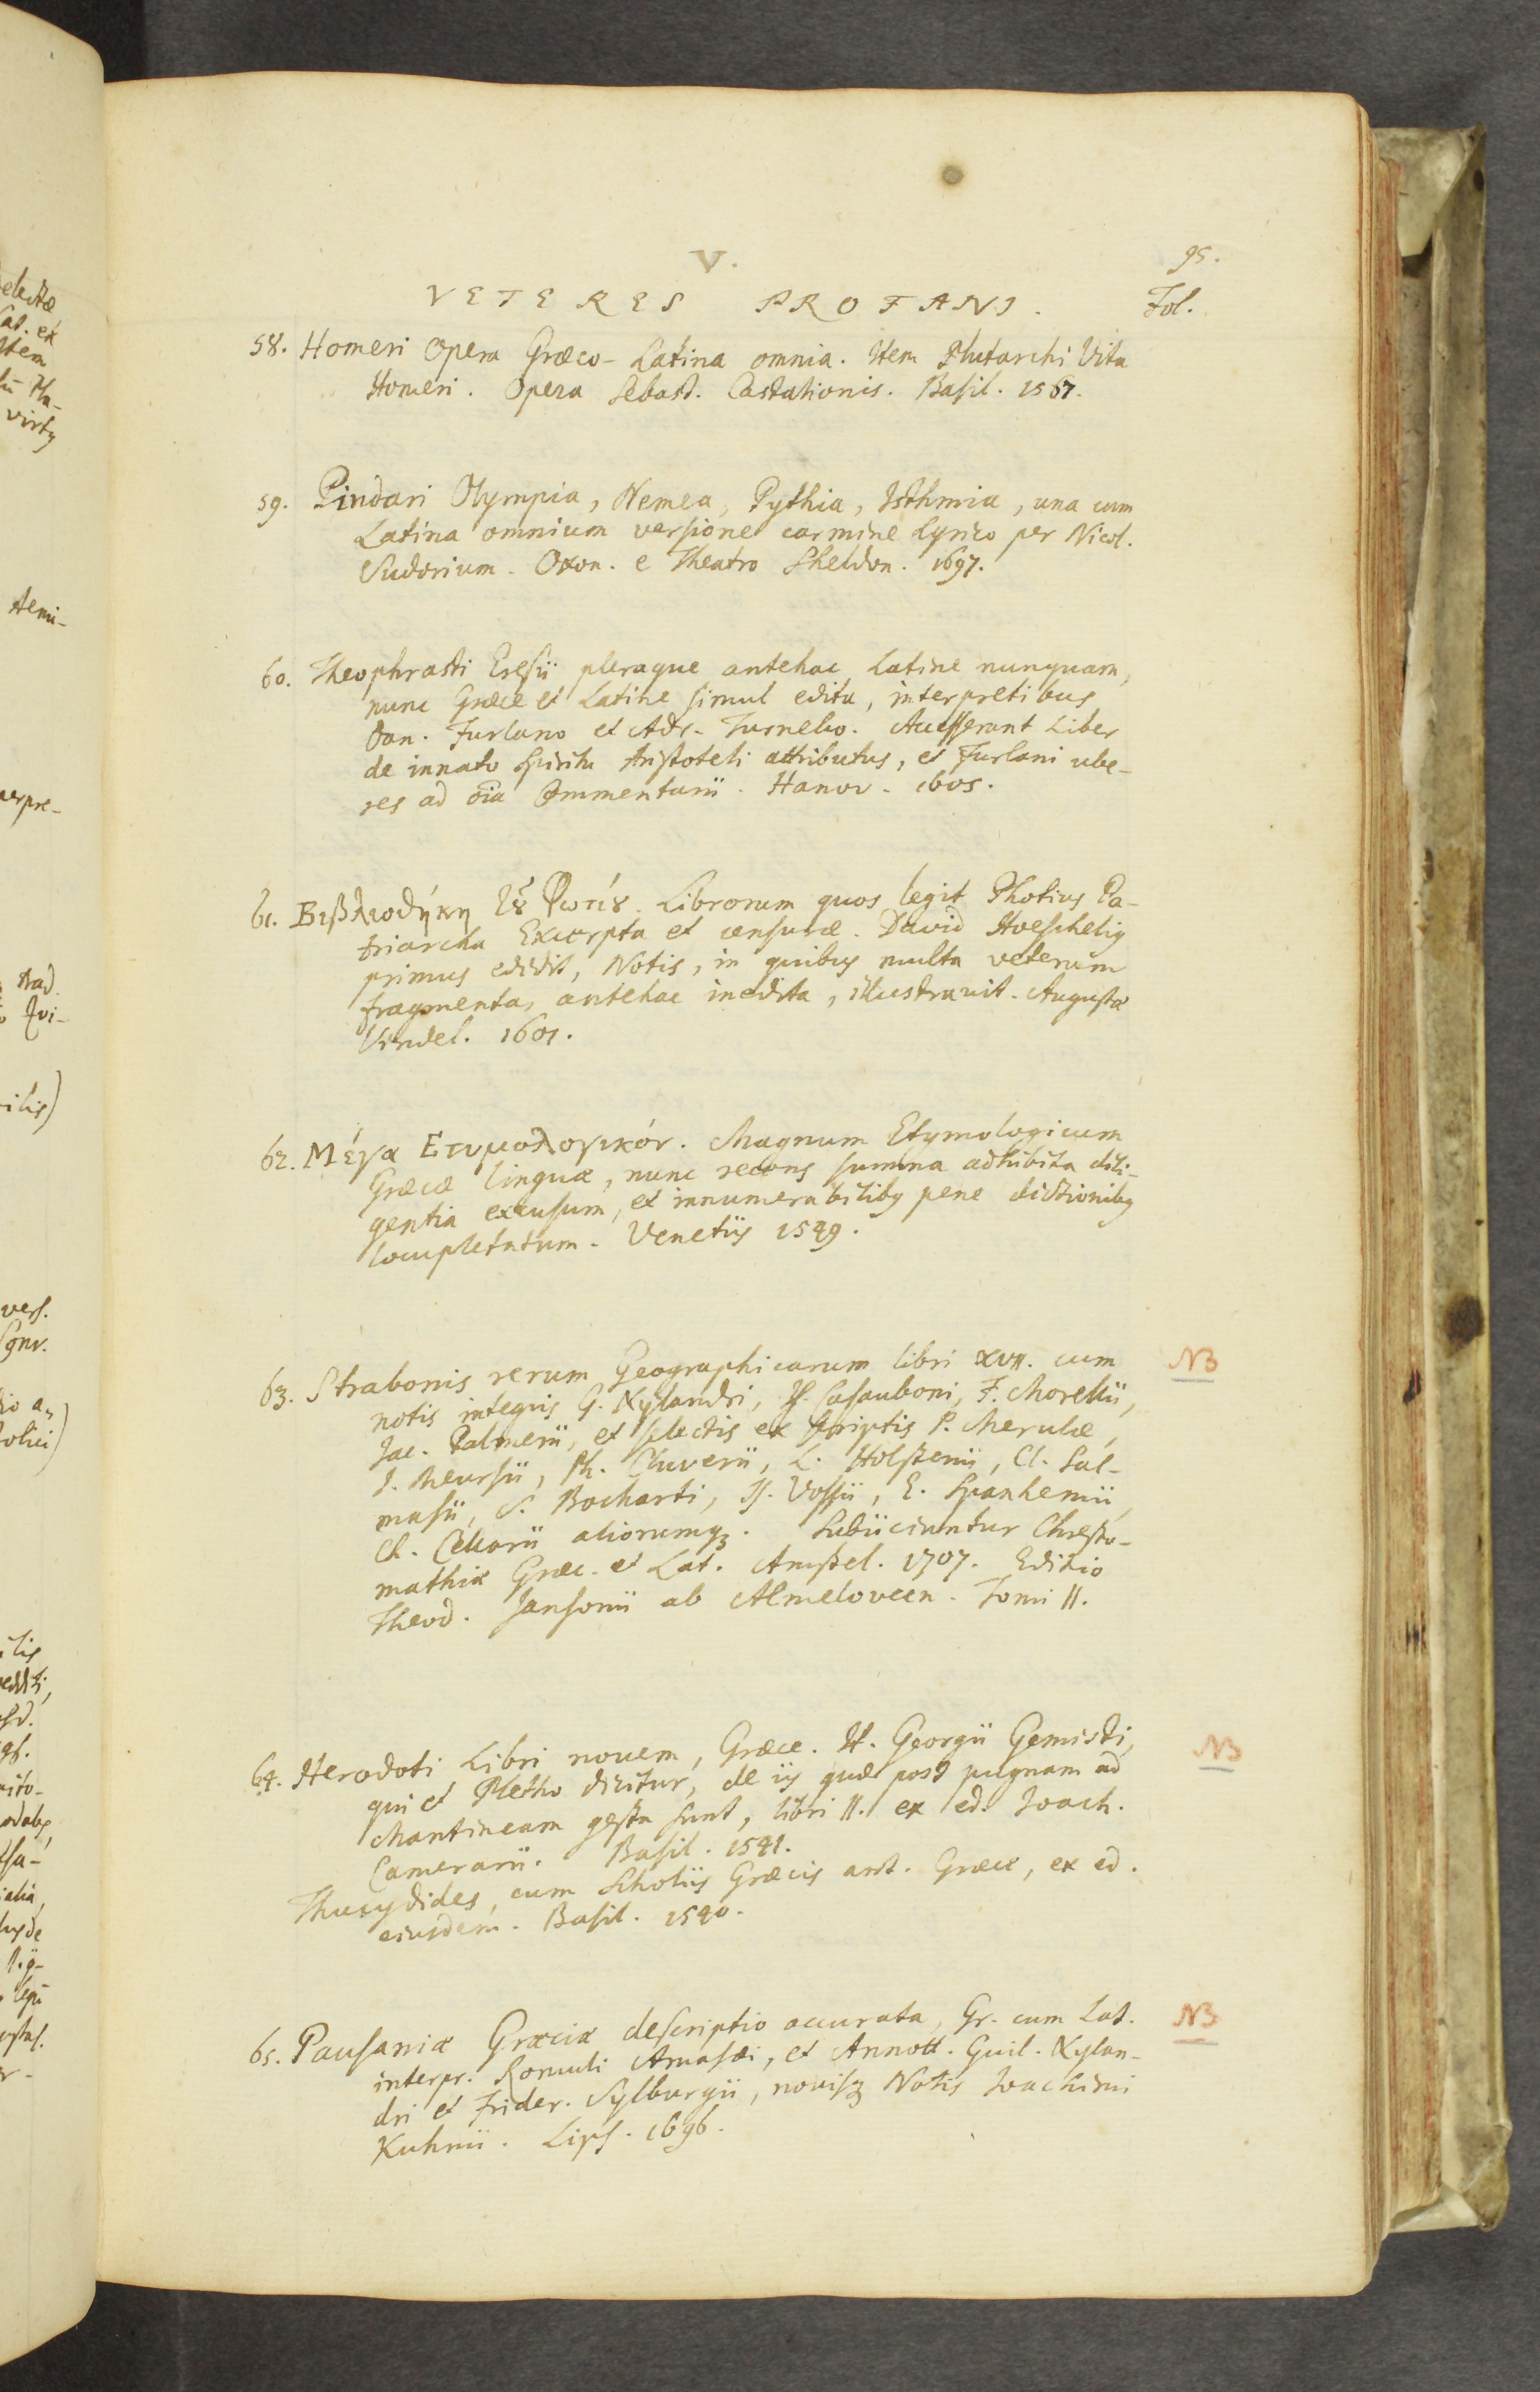 V.
95.
VETERES PROFANI.
Fol.
58. Homeri Opera Græco-Latina omnia. Item Plutarchi Vita
Homeri. Opera Sebast. Castalionis. Basil. 1567.
59. Pindari Olympia, Nemea, Pythia, Isthmia, una cum
Latina omnium versione carmine Lyrico per Nicol.
Sudorium. Oxon. e Theatro Sheldon. 1697.
60. Theophrasti Eresii pleraque antehac Latine nunquam,
nunc Græce et Latine simul edita, interpretibus
Dan. Furlano et Adr. Turnebo. Accesserunt Liber
de innato Spiritu Aristoteli attributus, et Furlani ube-
res ad oīa Commentarii. Hanov. 1605.
61. Βιβλιοθήκη τȣ͂ Φωτίȣ. Librorum quos legit Photius Pa-
triarcha Excerpta et censuræ. David Hoeschelig
primus edidit, Notis, in quibus multa veterum
fragmenta, antehac inedita, illustravit. Augustæ
Vindel. 1601.
62. Μέγα Ετυμολογικόν. Magnum Etymologicum
Græcæ linguæ, nunc recens summa adhibita dili-
gentia excusum, et innumerabilibg pene dictionibg
locupletatum. Venetiis 1549.
63. Strabonis rerum Geographicarum libri XVII. cum
notis integris G. Xylandri, Is. Casauboni, F. Morellii,
Jac. Palmerii, et selectis ex scriptis P. Merulæ,
J. Meursii, Ph. Cluverii, L. Holstenii, Cl. Sal-
masii, S. Bocharti, Is. Vossii, E. Spanhemii,
Ch. Cellarii aliorumqȝ. Subiiciuntur Chresto-
mathiæ Græc. et Lat. Amstel. 1707. Editio
Theod. Jansonii ab Almeloveen. Tomi II.
NB
64. Herodoti Libri novem, Græce. It. Georgii Gemisti,
qui et Pletho dicitur, de iis quæ post pugnam ad
Mantineam gesta sunt, libri II. ex ed. Joach.
Camerarii. Basil. 1541.
Thucydides, cum Scholiis Græcis ant. Græce, ex ed.
eiusdem. Basil. 1540.
NB
65. Pausaniæ Græciæ descriptio accurata, Gr. cum Lat.
interpr. Romuli Amasæi, et Annott. Guil. Xylan-
dri et Frider. Sylburgii, novisqȝ Notis Joachimi
Kuhnii. Lips. 1696.
NB